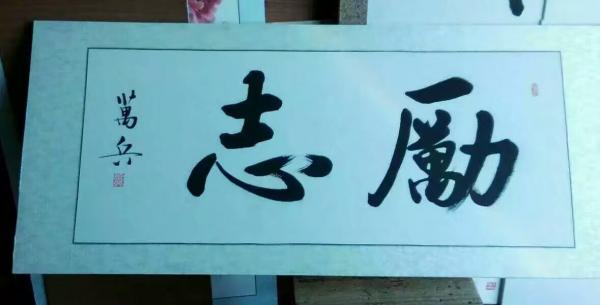 勵志
萬兵